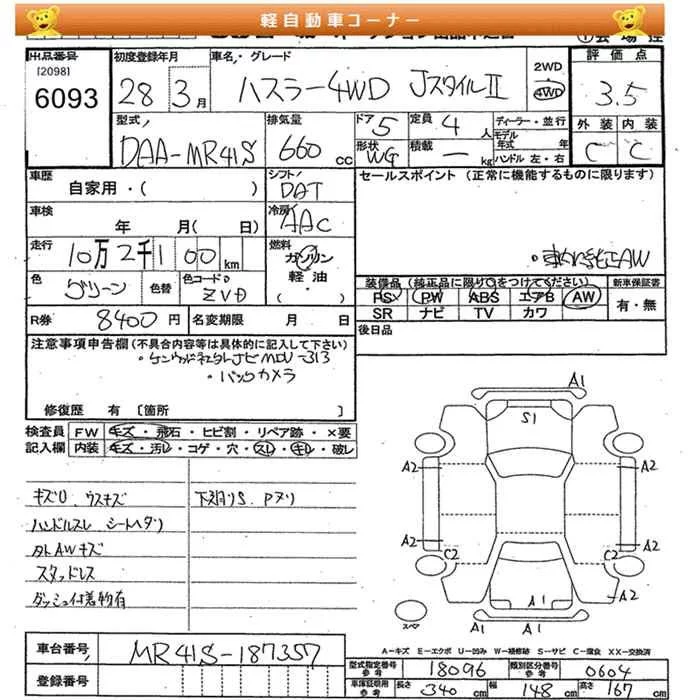 軽自動車コーナー
出品番号 初度登録年月 車名・グレード 2WD 評価点
[2098]
6093 28年 3月 ハスラー4WD JスタイルⅡ 4WD 3.5
型式 排気量 ドア 5 定員 4人 ディーラー・並行 外装 内装
DAA-MR41S 660cc 形状 WG 積載 ーkg モデル年式 年 ハンドル 左・右 C C
車歴 シフト セールスポイント (正常に機能するものに限ります)
自家用・( ) DAT
車検 冷房
年 月( 日) AAC
走行 10万2千100km 燃料 ガソリン
軽油
色 グリーン 色替 色コード ZVD 装備品(純正品に限り○をつけてください) 新車保証書
PS PW ABS エアB AW 有・無
R券 8400円 名変期限 月 日 SR ナビ TV カワ
注意事項申告欄(不具合内容等は具体的に記入して下さい) 後日品
・バックカメラ
修復歴 有 [箇所 ]
検査員 FW キズ・飛石・ヒビ割・リペア跡・×要
記入欄 内装 キズ・汚レ・コゲ・穴・スレ・キレ・破レ
A1
S1
A2 A2
キズU ウスキズ 下廻りS Pヌリ
ハンドルスレ シートヘタリ
外AWキズ A2 A2
C2 C2
スタッドレス
A2
ダッシュ付着物有 A1
スペア A1
A-キズ E-エクボ U-凹み W-補修跡 S-サビ C-腐食 XX-交換済
車台番号 MR41S-187357 型式指定番号 参考 18096 類別区分番号 参考 0604
登録番号 車庫証明用 参考 長さ 340cm 幅 148cm 高さ 167cm